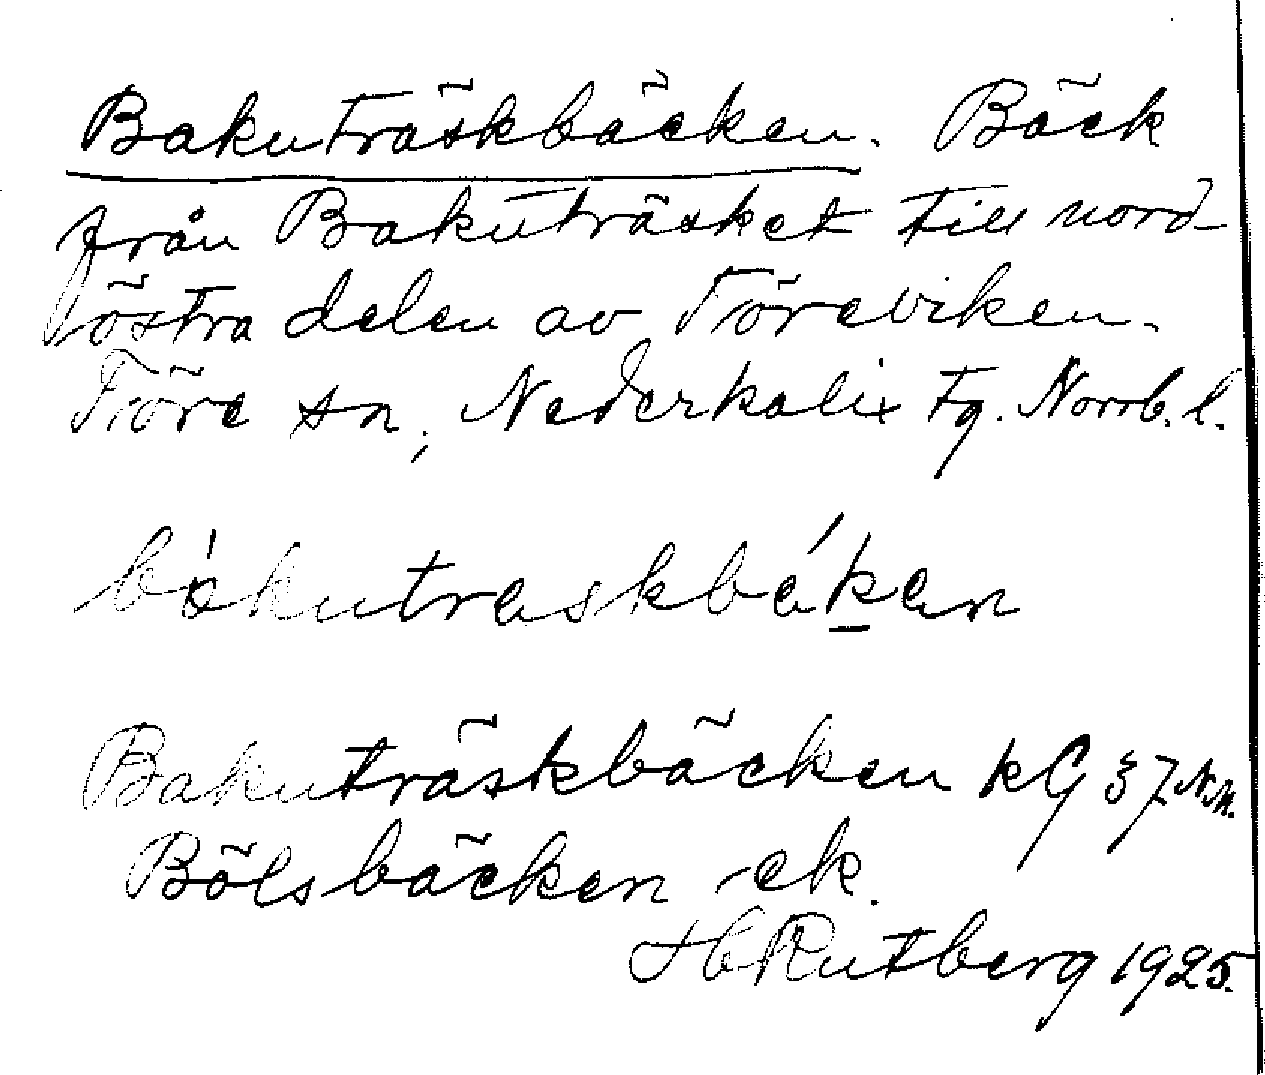 Bakuträskbäcken. Bäck
från Bakuträsket till nord-
östra delen av Töreviken.
Töre sn, Nederkalix tg. Norrb. l.
bakutraskbákan
Bakuträskbäcken kG 37 N.M.
Bölsbäcken -ek.
H Rutberg 1925.